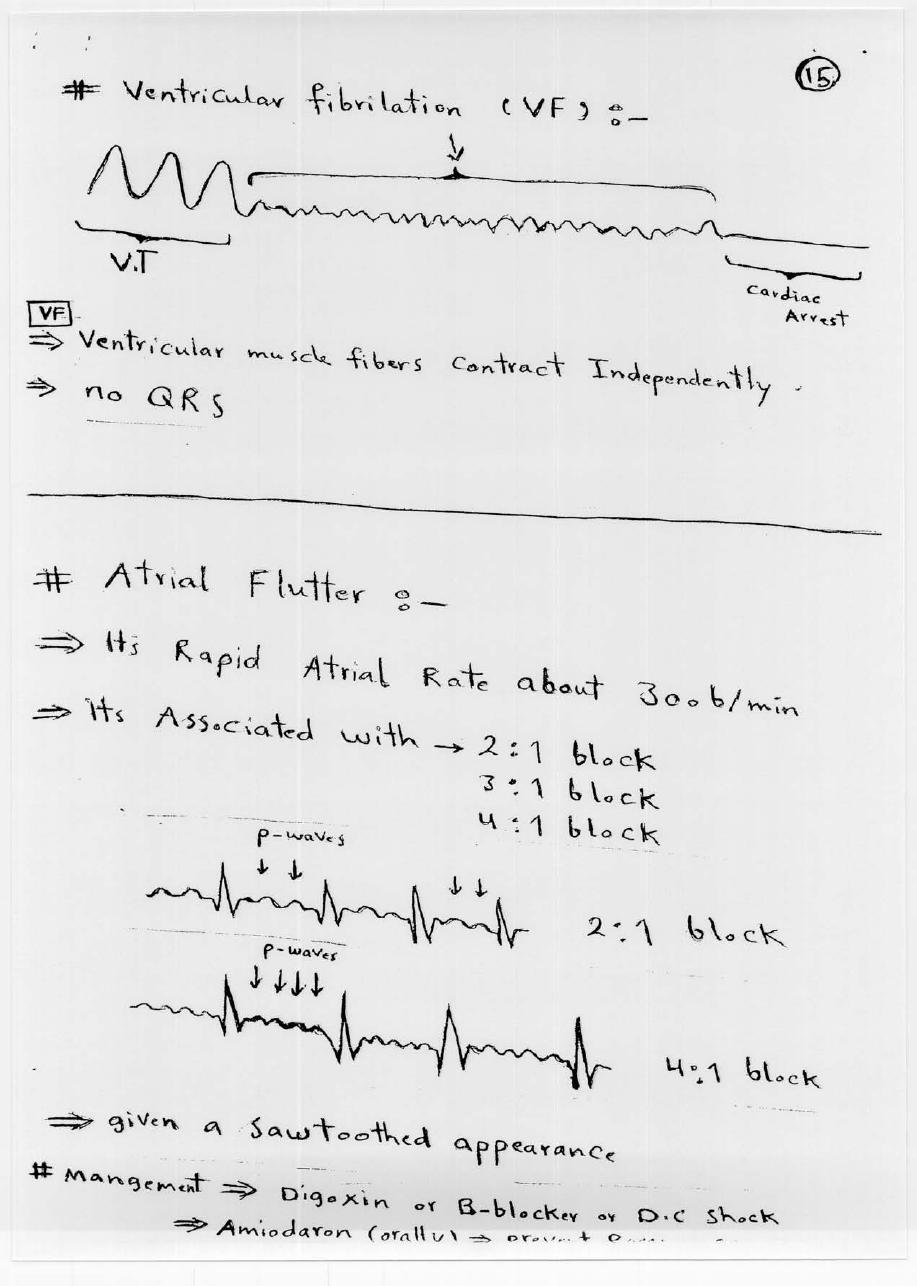 15
# Ventricular fibrilation (VF) :-
V.T
Cardiac
Arrest
VF
⇒ Ventricular muscle fibers Contract Independently .
⇒ no QRS
# Atrial Flutter :-
⇒ Its Rapid Atrial Rate about 300 b/min
⇒ Its Associated with → 2:1 block
3:1 block
4:1 block
p-waves
2:1 block
p-waves
4:1 block
⇒ given a Sawtoothed appearance
# Mangement ⇒ Digoxin or B-blocker or D.C Shock
⇒ Amiodaron (orally) ⇒